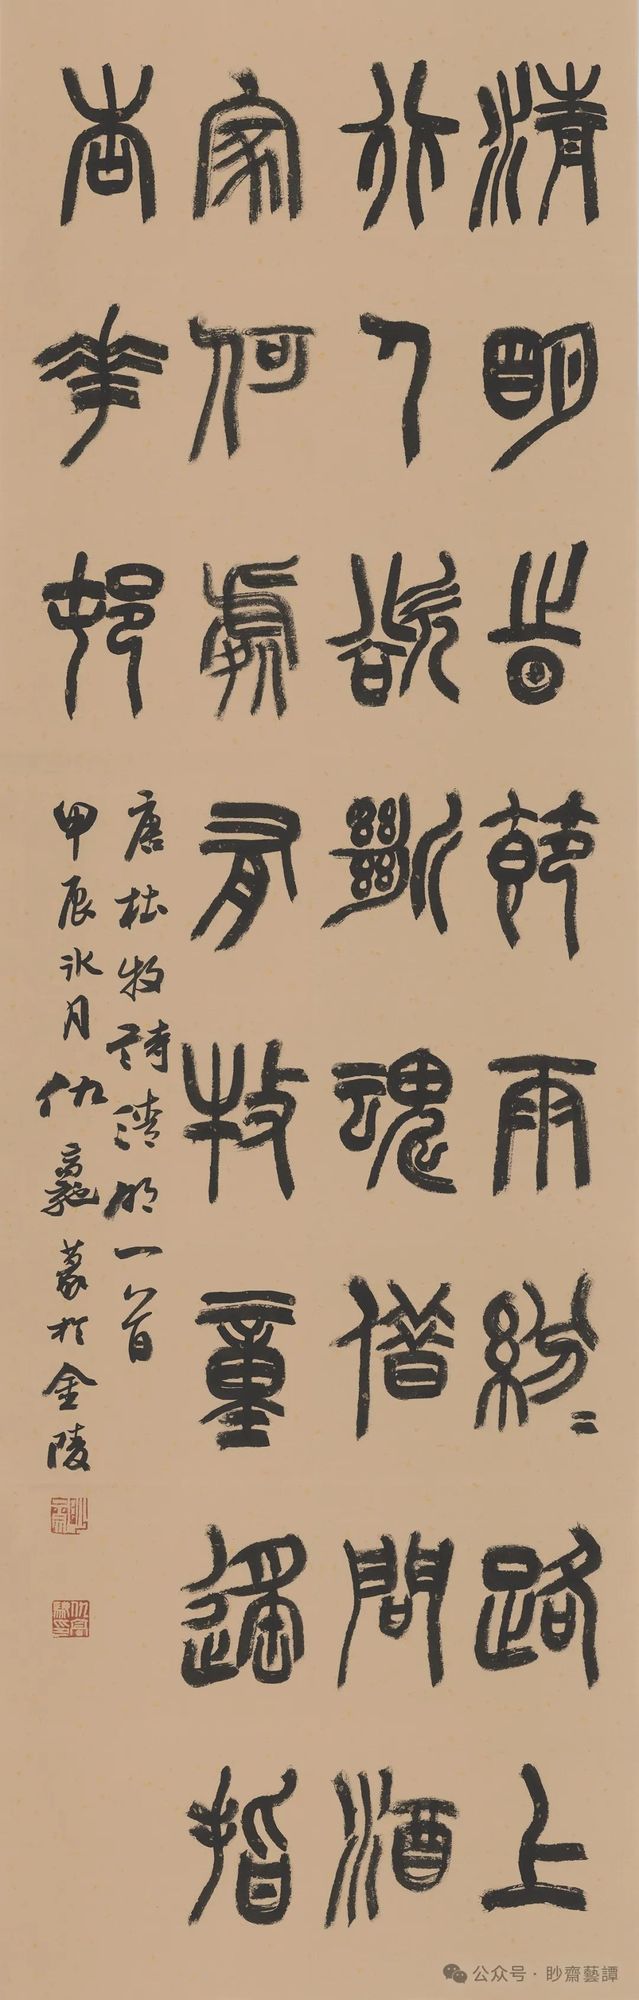 清明时節雨紛〻路上
行人欲斷魂借問酒
家何處有牧童遥指
杏華邨
唐杜牧詩清明一首
甲辰冰月仇高馳篆於金陵
公众号·眇齋藝譚